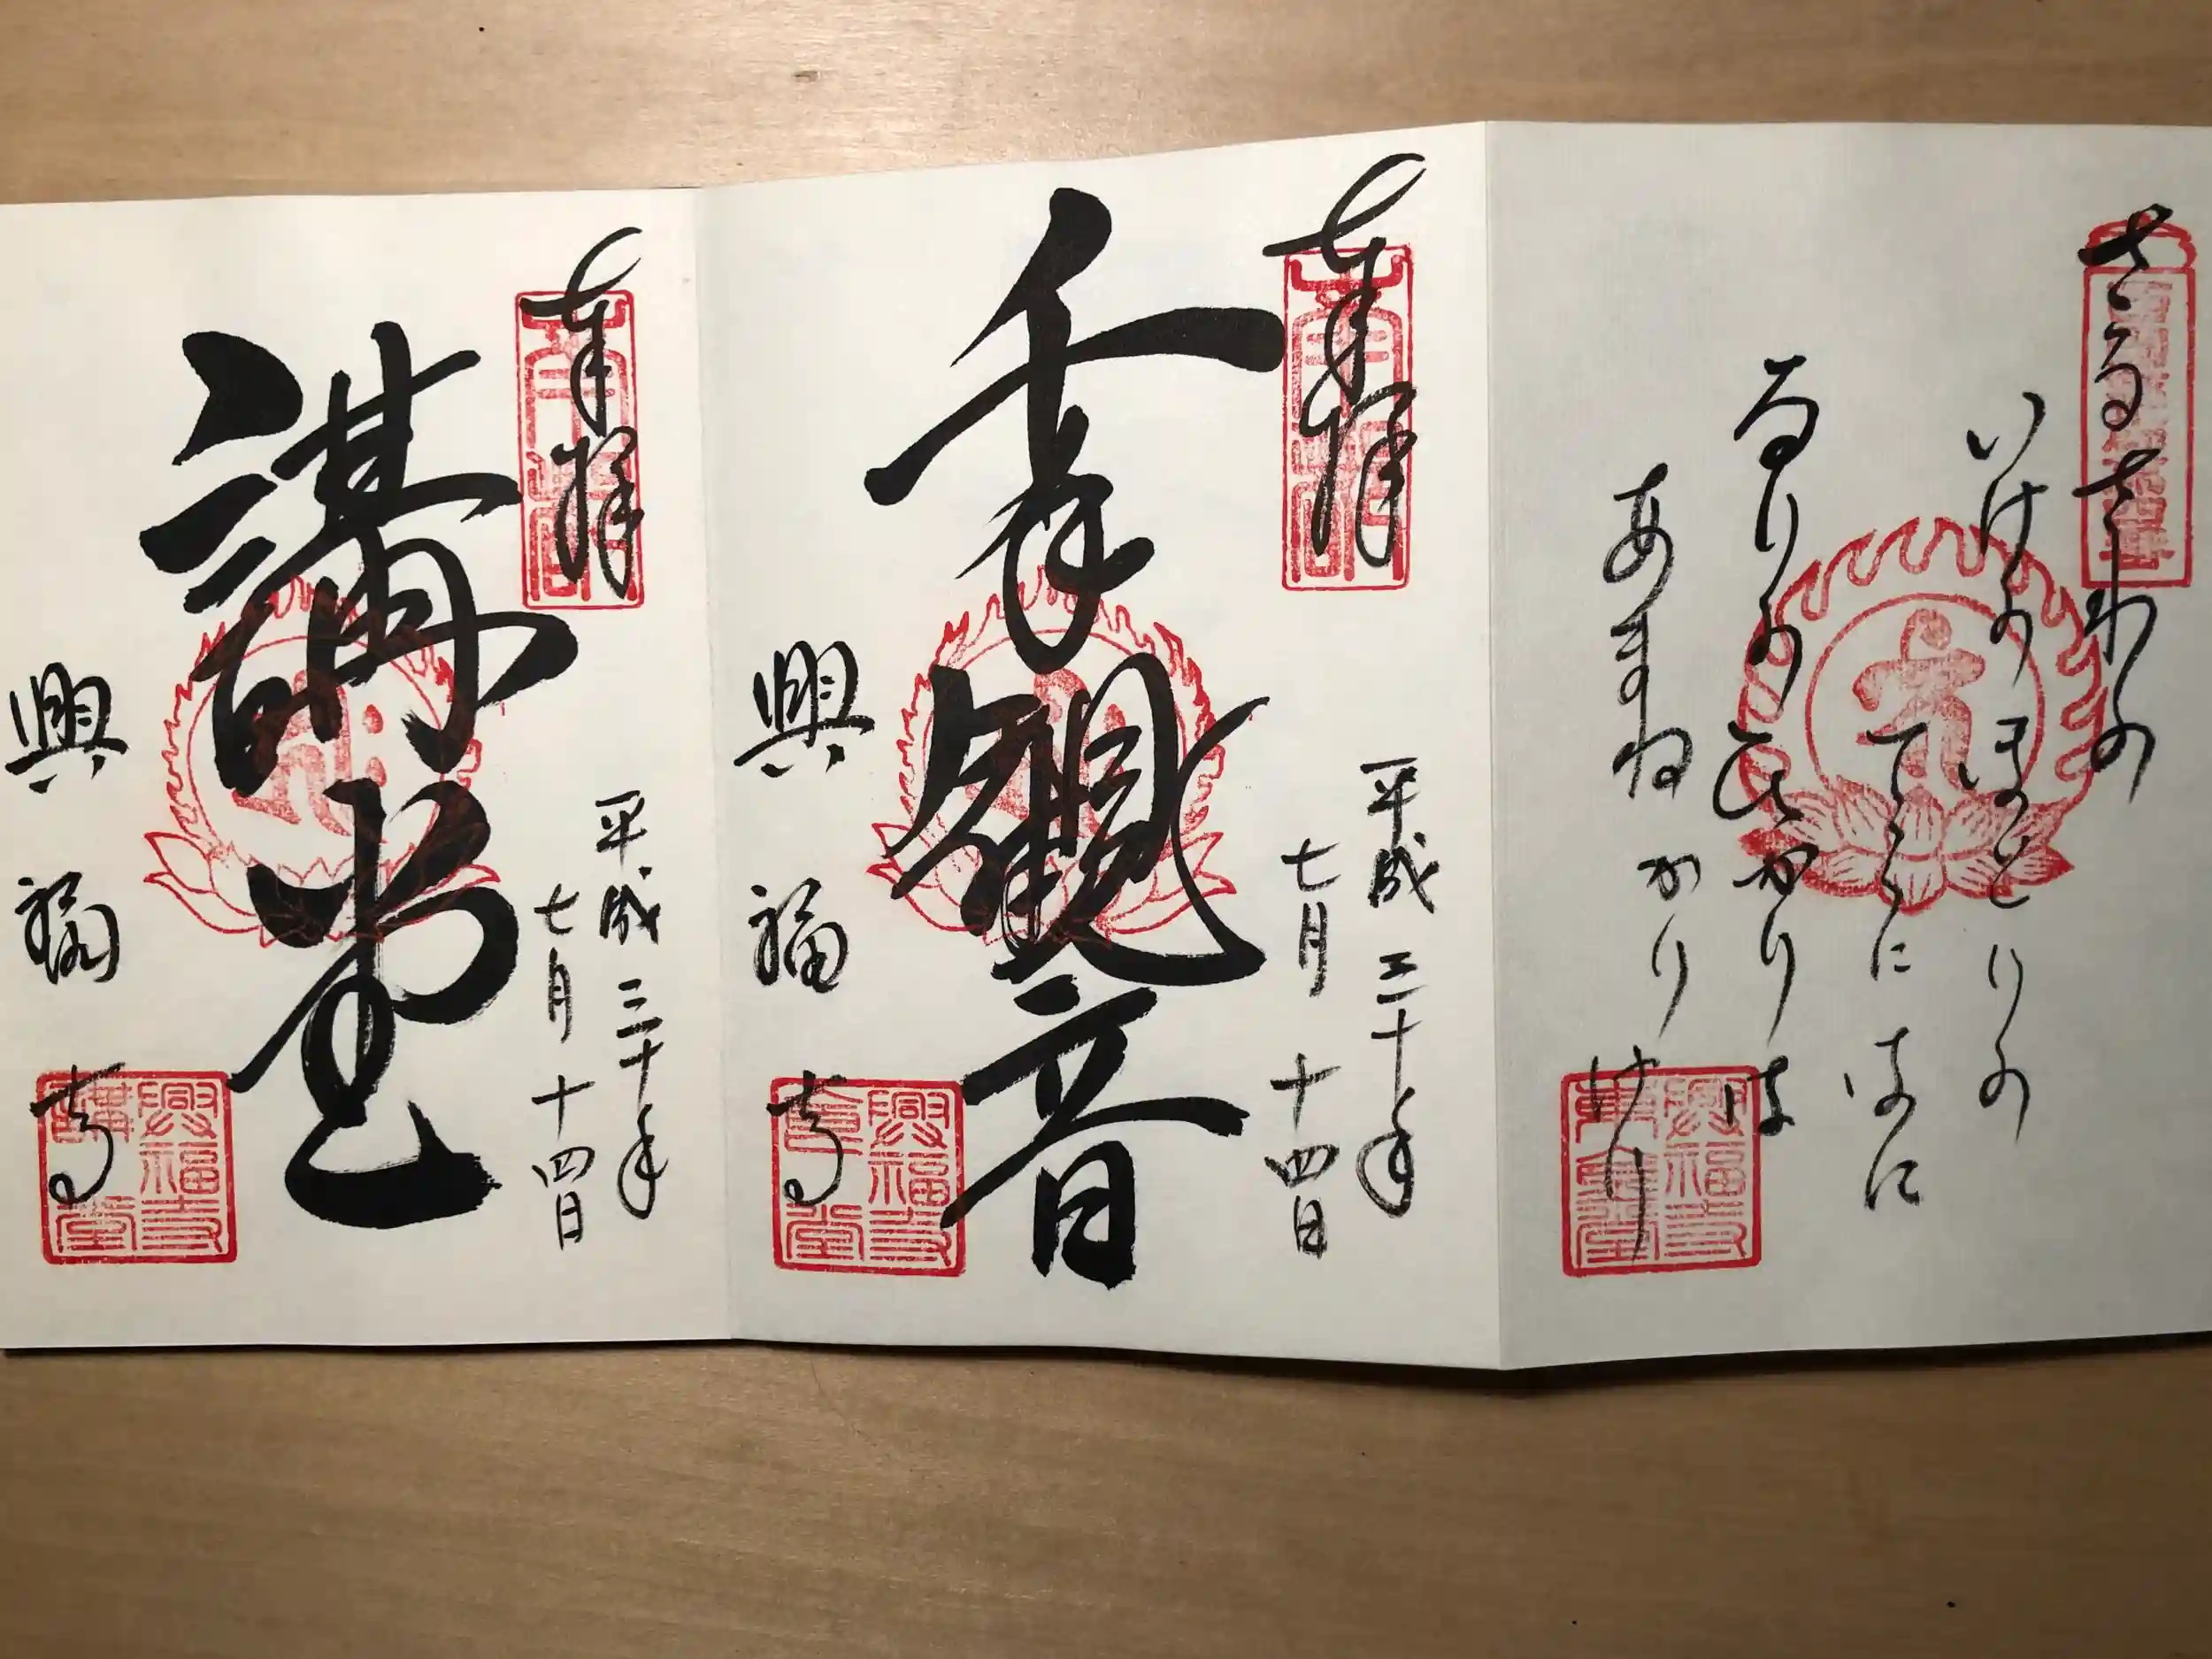 さるさわの
いけのほとりの
てらにはに
るりのひかりは
あまねかりけり
興福寺
東金堂
奉拝
平成三十年
七月十四日
千手觀音
興福寺
興福寺
食堂
奉拝
平成三十年
七月十四日
講堂
興福寺
興福寺
講堂